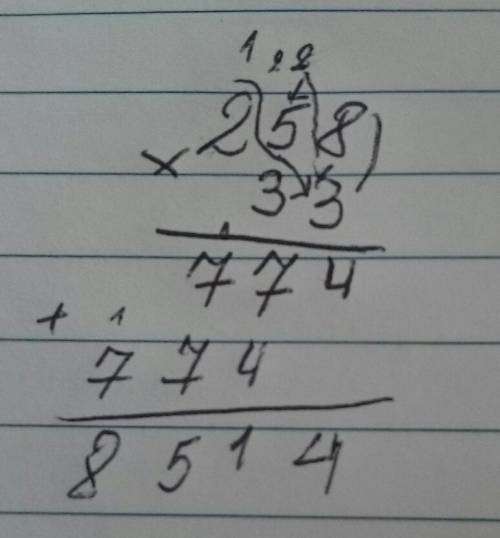 1 2 2
2 5 8
× 3 3
7 7 4
+ 1
7 7 4
8 5 1 4